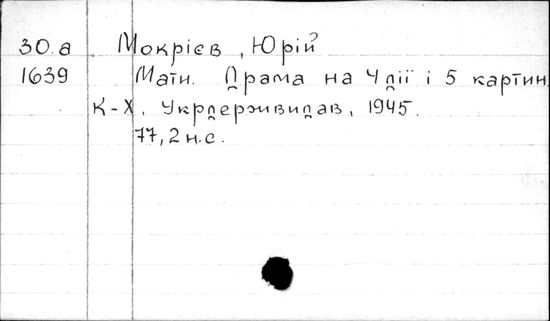 30.а Мокрієв, Юрій
1639 Мати. Драма на 4 дії і 5 картин.
К-Х. Укрдержвидав, 1945.
77, 2 н.с.